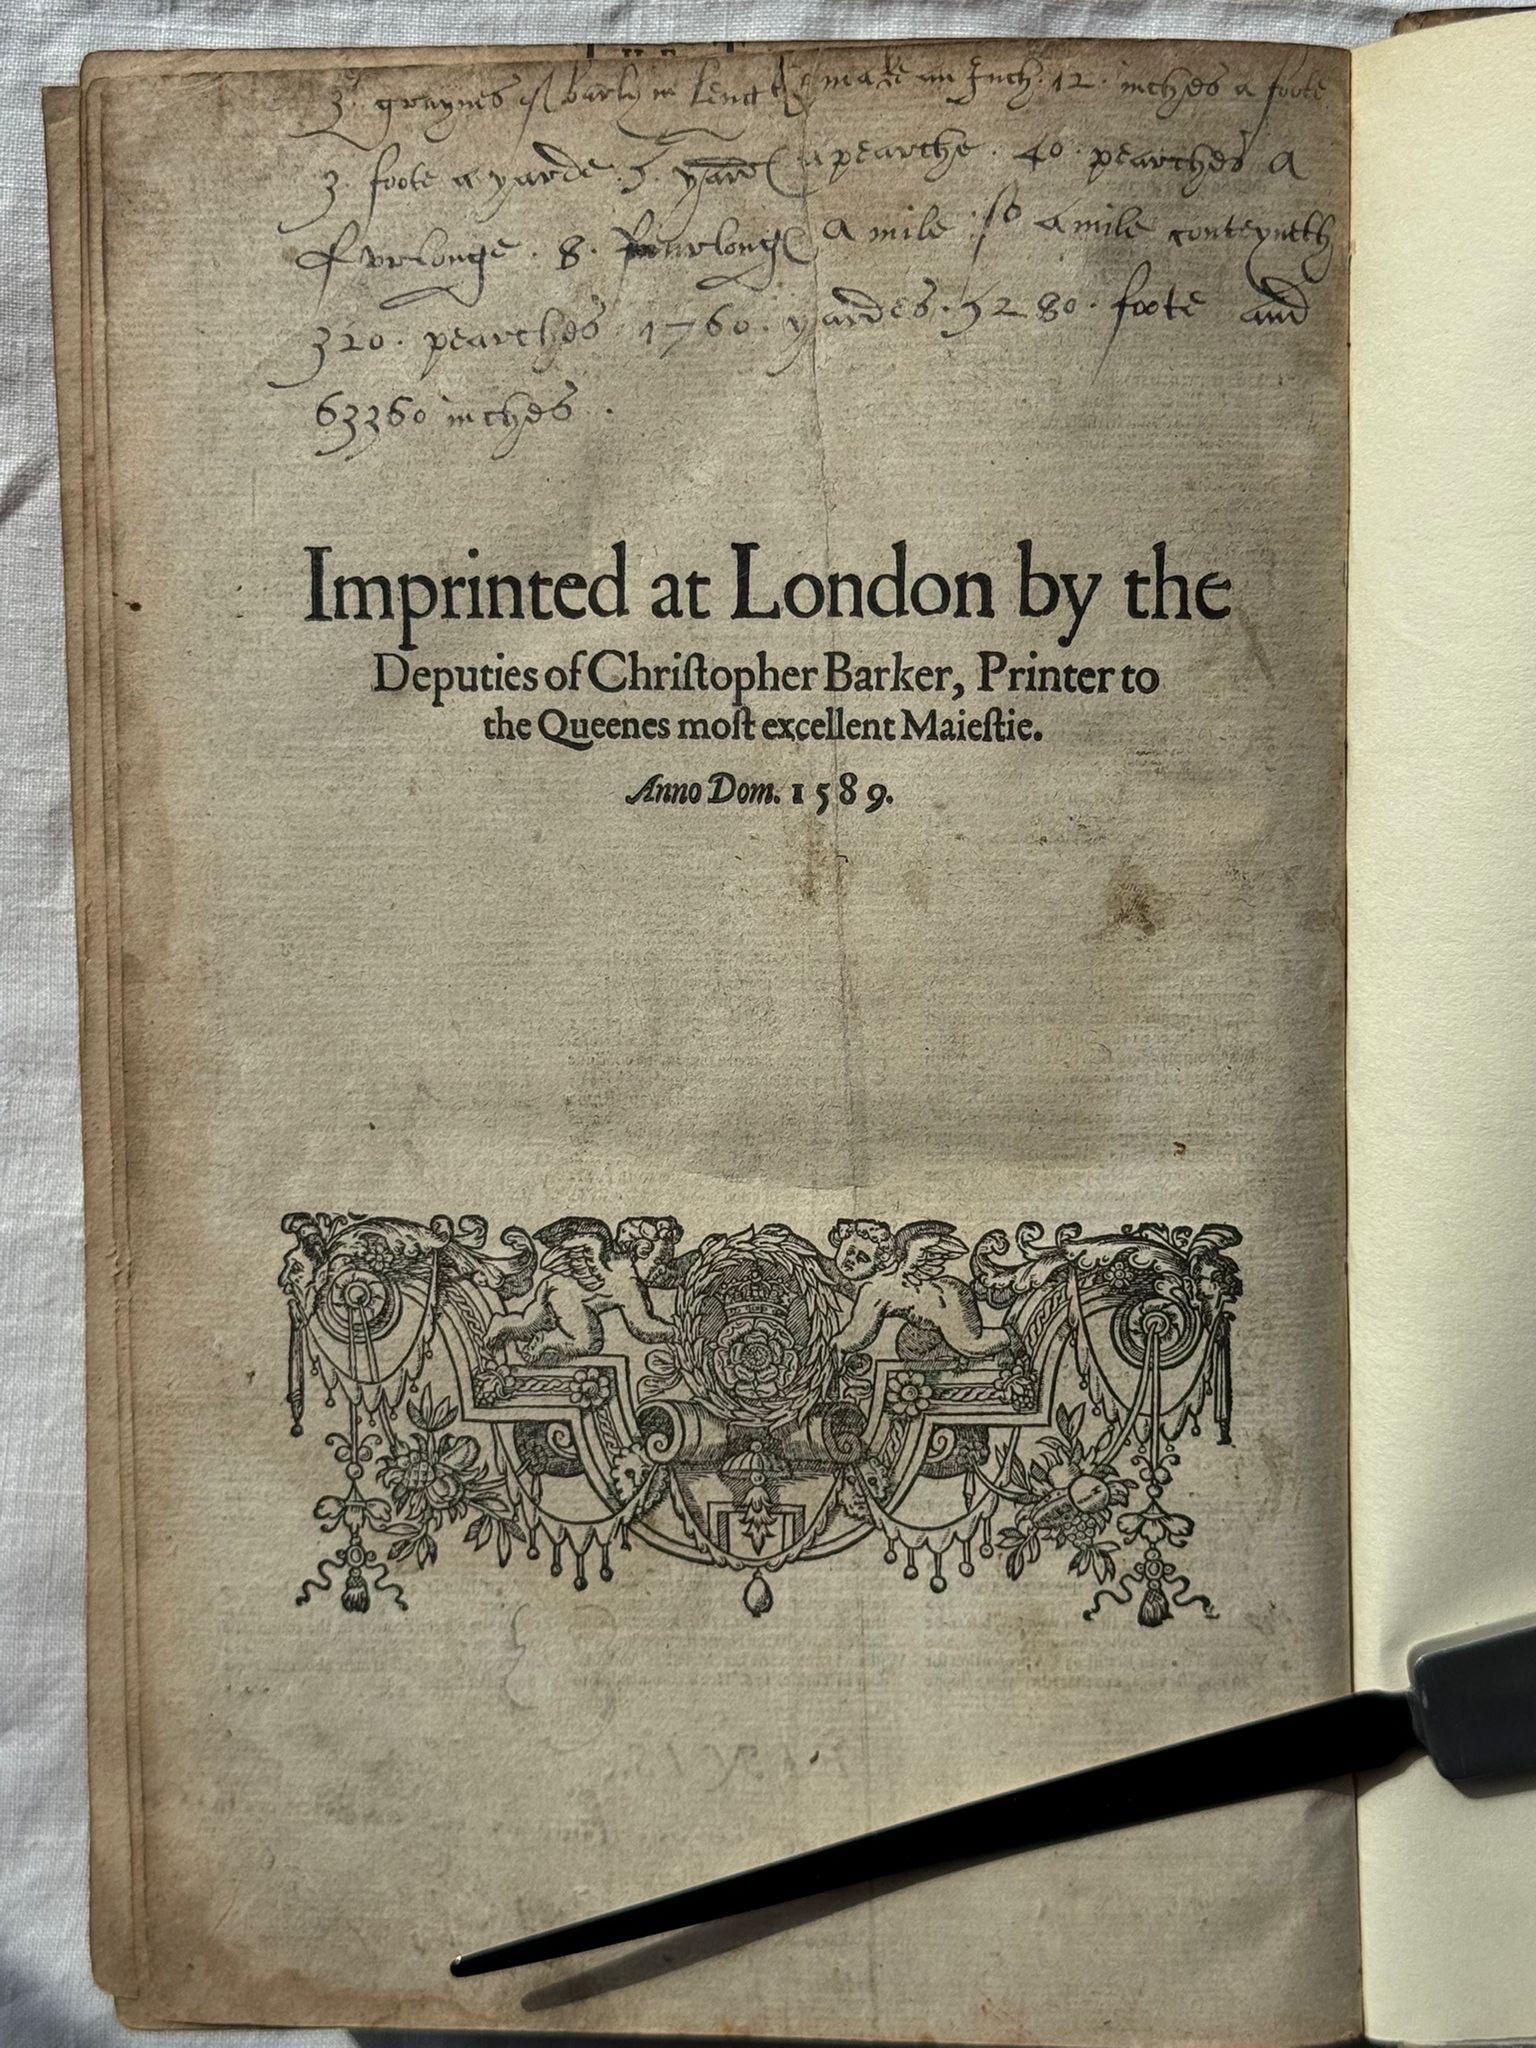 3. graynes of barly in length make an Inch. 12. inches a foote
3. foote a yarde. 5. yardes a pearche. 40. pearches a
ffurlonge. 8. ffurlonges a mile. so a mile conteyneth
320. pearches. 1760. yardes. 5280. foote and
63360 inches.
Imprinted at London by the
Deputies of Chriſtopher Barker, Printer to
the Queenes moſt excellent Maieſtie.
Anno Dom. 1589.